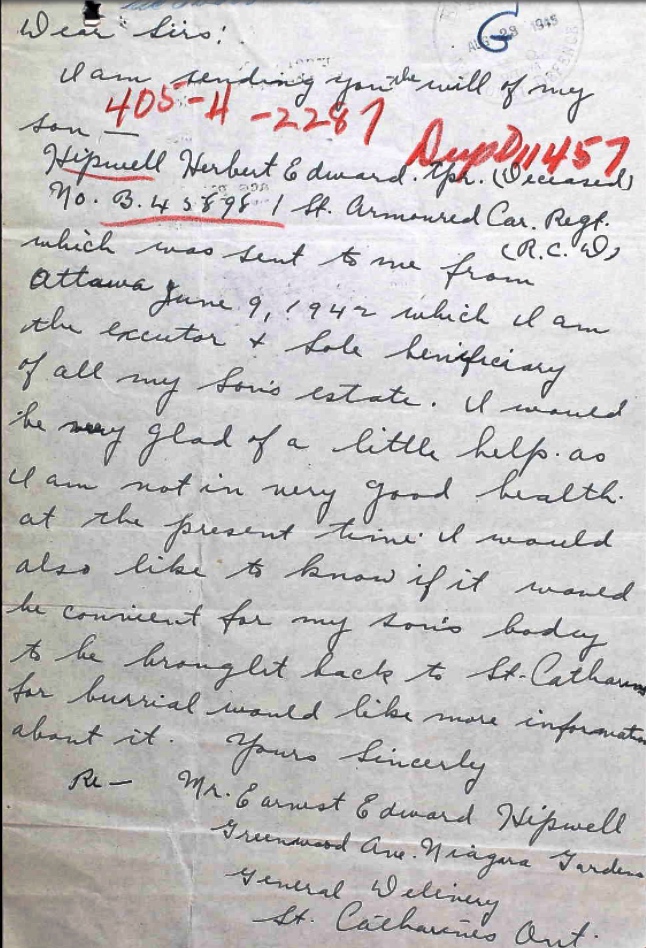 Dear Sirs:
G
AUG 29 1945
DEFENCE
I am sending you the will of my
son —
405-H-2287
DupD11457
Hipwell Herbert Edward. Tpr. (Deceased)
No. B.45898 1 St. Armoured Car. Regt.
(R.C.D)
which was sent to me from
Ottawa June 9, 1942 which I am
the excutor & Sole benificiary
of all my Son's estate. I would
be very glad of a little help. as
I am not in very good health.
at the present time. I would
also like to know if it would
be convient for my son's body
to be brought back to St-Catharines
for burrial would like more information
about it. Yours Sincerly
Re— Mr. Earnest Edward Hipwell
Greenwood Ave. Niagara Gardens
General Delivery
St. Catharines Ont.